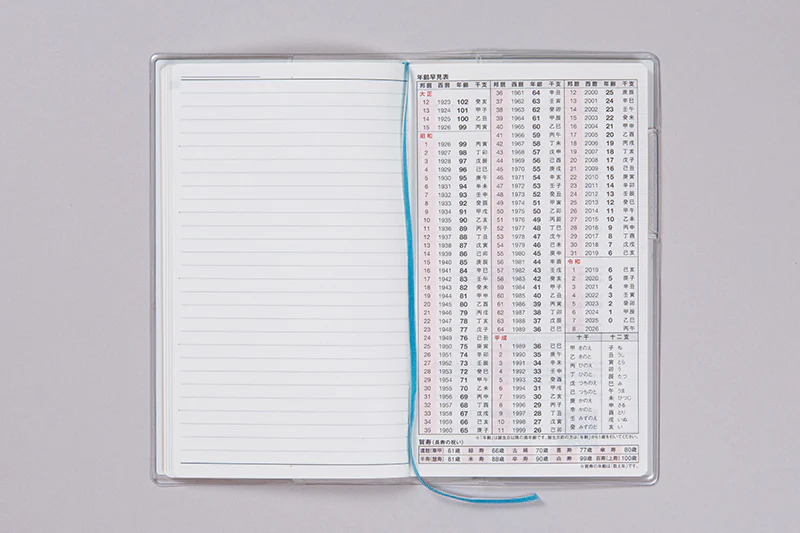 年齢早見表
邦暦 西暦 年齢 干支
大正
12 1923 102 癸亥
13 1924 101 甲子
14 1925 100 乙丑
15 1926 99 丙寅
昭和
1 1926 99 丙寅
2 1927 98 丁卯
3 1928 97 戊辰
4 1929 96 己巳
5 1930 95 庚午
6 1931 94 辛未
7 1932 93 壬申
8 1933 92 癸酉
9 1934 91 甲戌
10 1935 90 乙亥
11 1936 89 丙子
12 1937 88 丁丑
13 1938 87 戊寅
14 1939 86 己卯
15 1940 85 庚辰
16 1941 84 辛巳
17 1942 83 壬午
18 1943 82 癸未
19 1944 81 甲申
20 1945 80 乙酉
21 1946 79 丙戌
22 1947 78 丁亥
23 1948 77 戊子
24 1949 76 己丑
25 1950 75 庚寅
26 1951 74 辛卯
27 1952 73 壬辰
28 1953 72 癸巳
29 1954 71 甲午
30 1955 70 乙未
31 1956 69 丙申
32 1957 68 丁酉
33 1958 67 戊戌
34 1959 66 己亥
35 1960 65 庚子
邦暦 西暦 年齢 干支
36 1961 64 辛丑
37 1962 63 壬寅
38 1963 62 癸卯
39 1964 61 甲辰
40 1965 60 乙巳
41 1966 59 丙午
42 1967 58 丁未
43 1968 57 戊申
44 1969 56 己酉
45 1970 55 庚戌
46 1971 54 辛亥
47 1972 53 壬子
48 1973 52 癸丑
49 1974 51 甲寅
50 1975 50 乙卯
51 1976 49 丙辰
52 1977 48 丁巳
53 1978 47 戊午
54 1979 46 己未
55 1980 45 庚申
56 1981 44 辛酉
57 1982 43 壬戌
58 1983 42 癸亥
59 1984 41 甲子
60 1985 40 乙丑
61 1986 39 丙寅
62 1987 38 丁卯
63 1988 37 戊辰
64 1989 36 己巳
平成
1 1989 36 己巳
2 1990 35 庚午
3 1991 34 辛未
4 1992 33 壬申
5 1993 32 癸酉
6 1994 31 甲戌
7 1995 30 乙亥
8 1996 29 丙子
9 1997 28 丁丑
10 1998 27 戊寅
11 1999 26 己卯
邦暦 西暦 年齢 干支
12 2000 25 庚辰
13 2001 24 辛巳
14 2002 23 壬午
15 2003 22 癸未
16 2004 21 甲申
17 2005 20 乙酉
18 2006 19 丙戌
19 2007 18 丁亥
20 2008 17 戊子
21 2009 16 己丑
22 2010 15 庚寅
23 2011 14 辛卯
24 2012 13 壬辰
25 2013 12 癸巳
26 2014 11 甲午
27 2015 10 乙未
28 2016 9 丙申
29 2017 8 丁酉
30 2018 7 戊戌
31 2019 6 己亥
令和
1 2019 6 己亥
2 2020 5 庚子
3 2021 4 辛丑
4 2022 3 壬寅
5 2023 2 癸卯
6 2024 1 甲辰
7 2025 0 乙巳
8 2026 丙午
十干 十二支
甲 きのえ 子 ね
乙 きのと 丑 うし
丙 ひのえ 寅 とら
丁 ひのと 卯 う
戊 つちのえ 辰 たつ
己 つちのと 巳 み
庚 かのえ 午 うま
辛 かのと 未 ひつじ
壬 みずのえ 申 さる
癸 みずのと 酉 とり
戌 いぬ
亥 い
※「年齢」は誕生日以降の満年齢です。誕生日前の方は、「年齢」から1歳を引いてください。
賀寿(長寿の祝い)
還暦(華甲) 61歳 緑寿 66歳 古稀 70歳 喜寿 77歳 傘寿 80歳
半寿(盤寿) 81歳 米寿 88歳 卒寿 90歳 白寿 99歳 百寿(上寿) 100歳
※賀寿の年齢は「数え年」です。